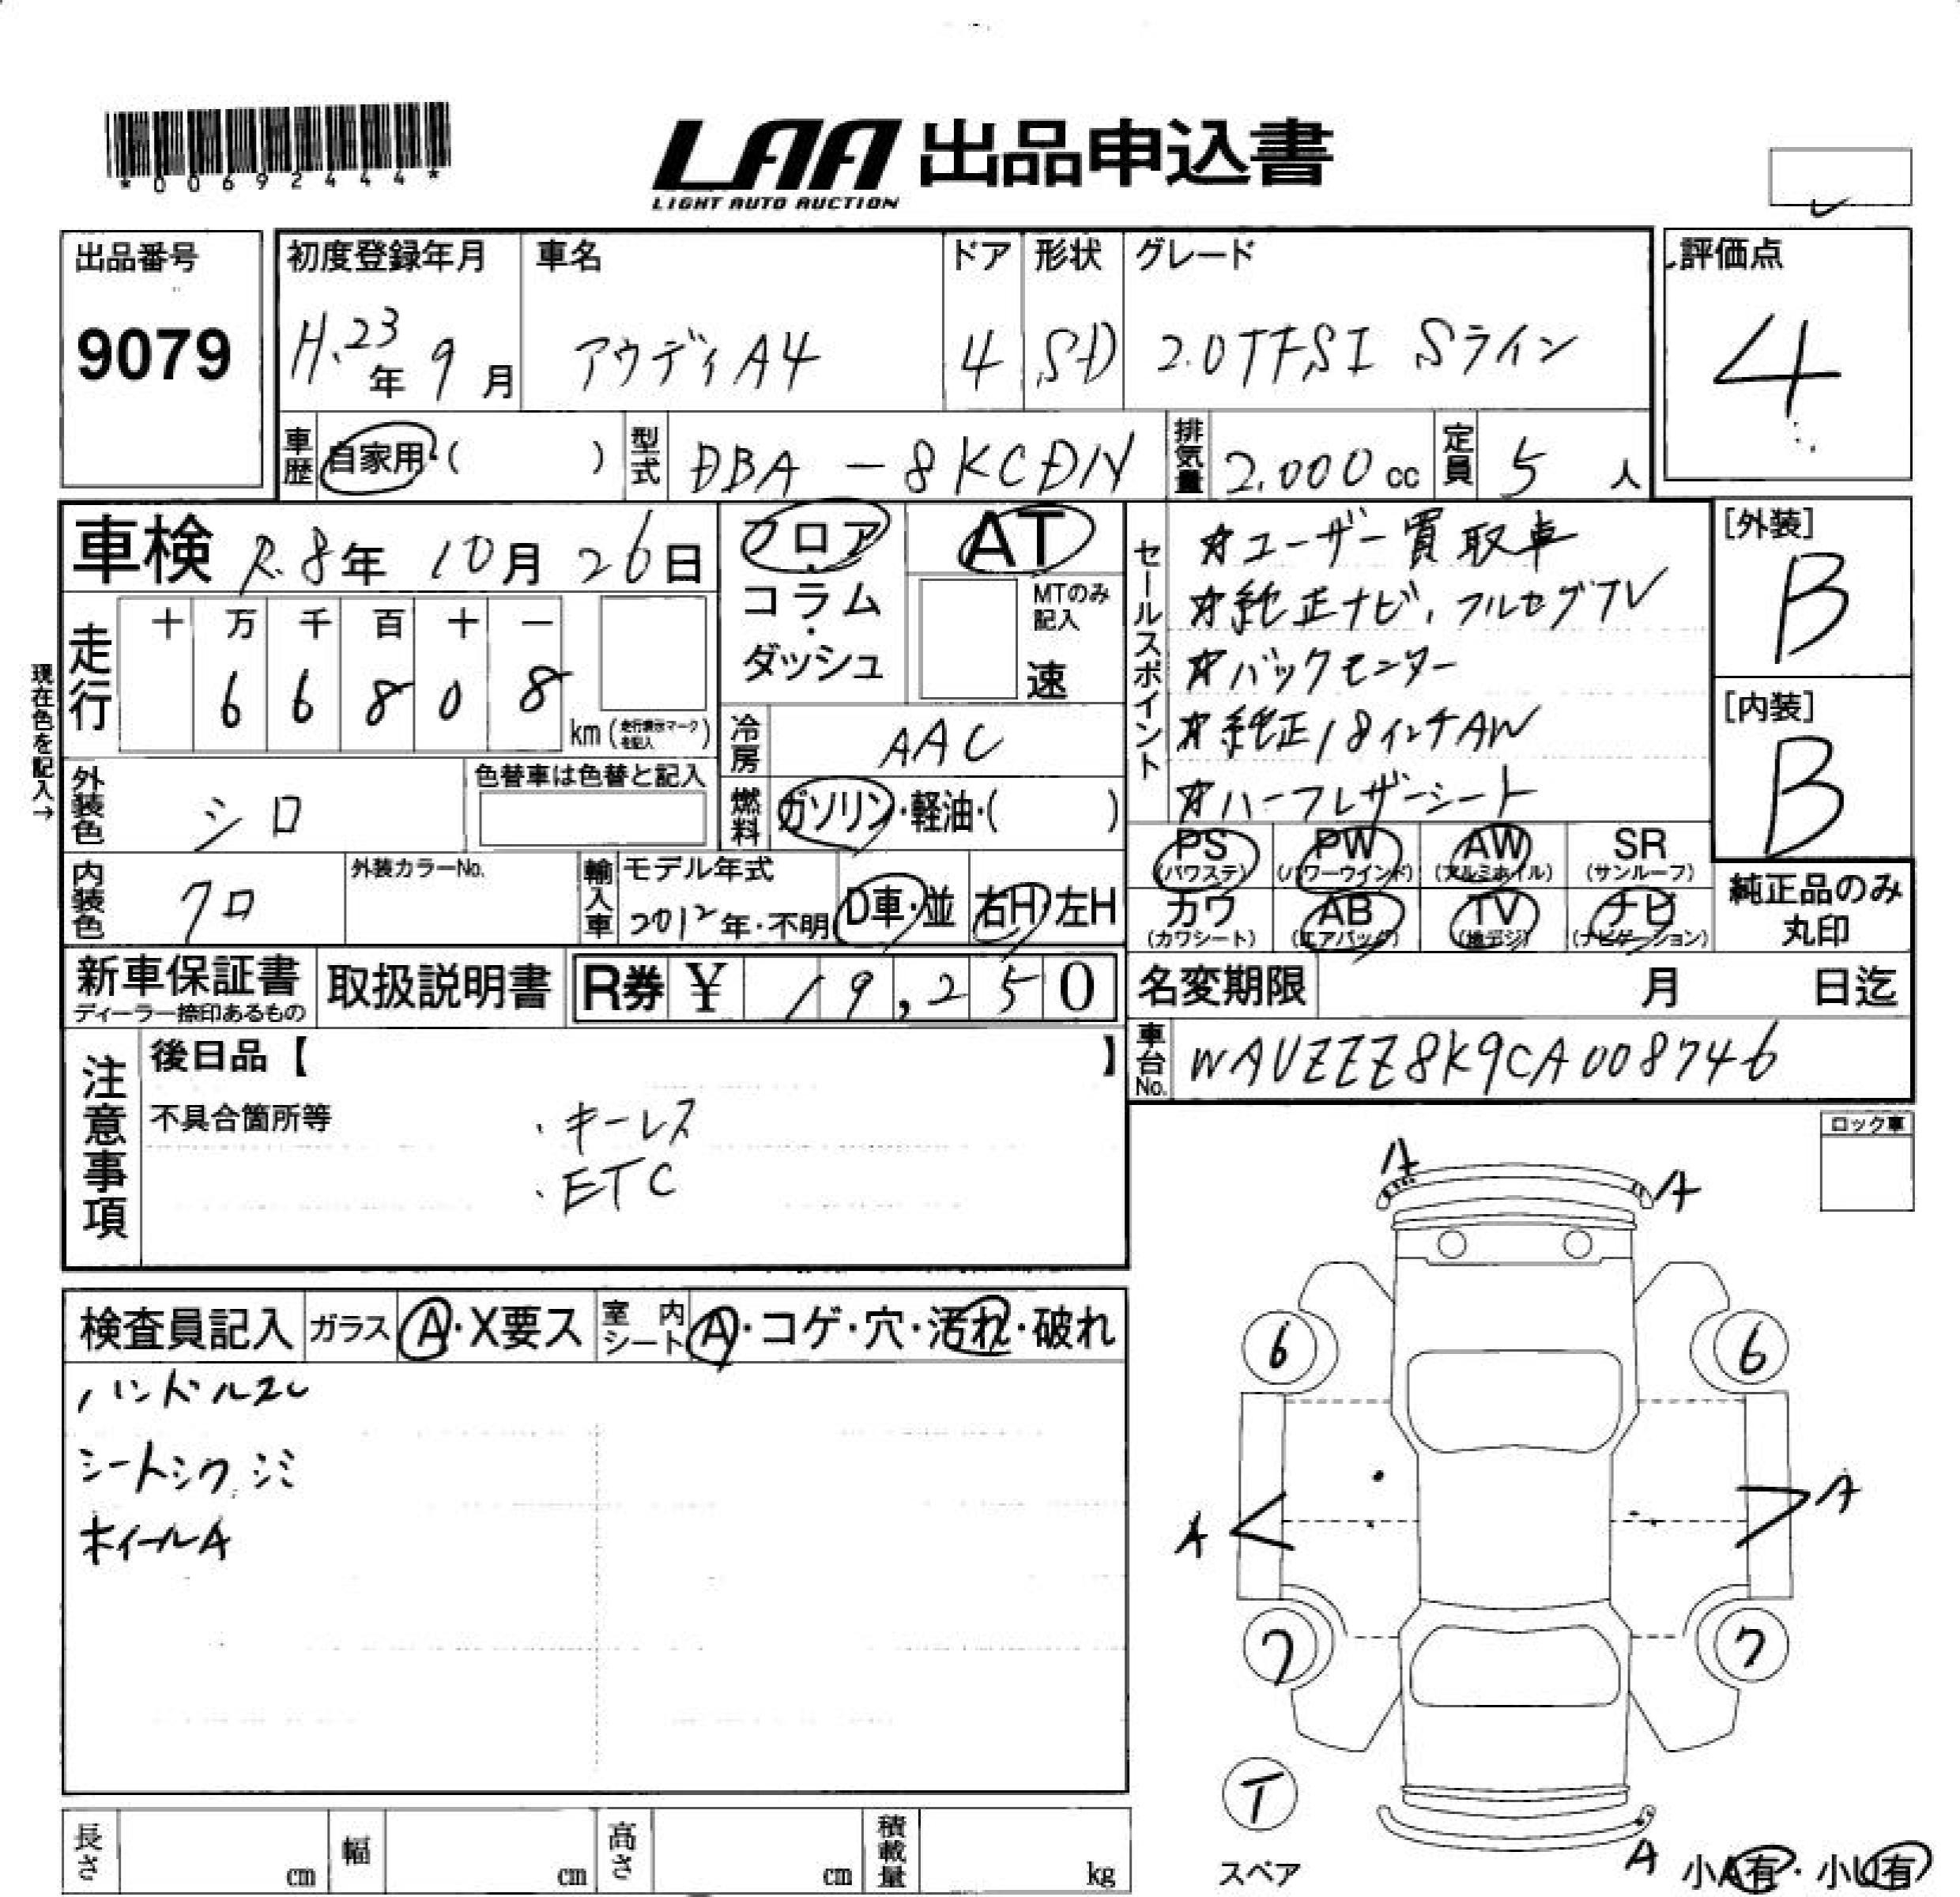 *00692444*
LAA 出品申込書
LIGHT AUTO AUCTION
出品番号
9079
初度登録年月
H.23年 9月
車名
アウディ A4
ドア
4
形状
SD
グレード
2.0TFSI Sライン
評価点
4
車歴 自家用・( )
型式 DBA-8KCDN
排気量 2.000cc
定員 5人
車検 R.8年 10月 26日
フロア・コラム・ダッシュ
AT
MTのみ記入
速
セールスポイント
☆ユーザー買取車
☆純正ナビ、フルセグTV
☆バックモニター
☆純正18インチAW
☆ハーフレザーシート
[外装]
B
[内装]
B
現在色を記入→
走行
十 万 千 百 十 一
6 6 8 0 8
km (走行表示マークを記入)
冷房 AAC
燃料 ガソリン・軽油・( )
外装色 シロ
色替車は色替と記入
内装色 クロ
外装カラーNo.
輸入車 モデル年式
2012年・不明
D車・並
右H 左H
PS (パワステ)
PW (パワーウインド)
AW (アルミホイル)
SR (サンルーフ)
カワ (カワシート)
AB (エアバッグ)
TV (地デジ)
ナビ (ナビゲーション)
純正品のみ
丸印
新車保証書
ディーラー捺印あるもの
取扱説明書
R券 ¥ 19,250
名変期限 月 日迄
車台No. WAUZZZ8K9CA008746
注意事項
後日品【 】
不具合箇所等
・キーレス
・ETC
ロック車
検査員記入
ガラス A・X要ス
室内シート A・コゲ・穴・汚れ・破れ
ハンドルスレ
シートシワ シミ
ホイールA
A
A
6
6
A
A
7
7
T
スペア
A
小A有・小U有
長さ cm
幅 cm
高さ cm
積載量 kg